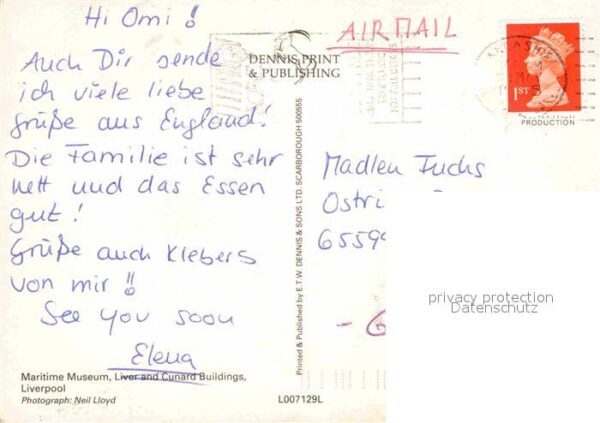 Hi Omi !!
Auch Dir sende
ich viele liebe
Grüße aus England!
Die Familie ist sehr
nett und das Essen
gut!
Grüße auch Klebers
von mir !!
See you soon
Elena
Maritime Museum, Liver and Cunard Buildings,
Liverpool
Photograph: Neil Lloyd
DENNIS PRINT
& PUBLISHING
Printed & Published by E.T.W. DENNIS & SONS LTD. SCARBOROUGH 500555
L007129L
AIRMAIL
1ST
PRODUCTION
Madlen Fuchs
Ostri
6559
privacy protection
Datenschutz